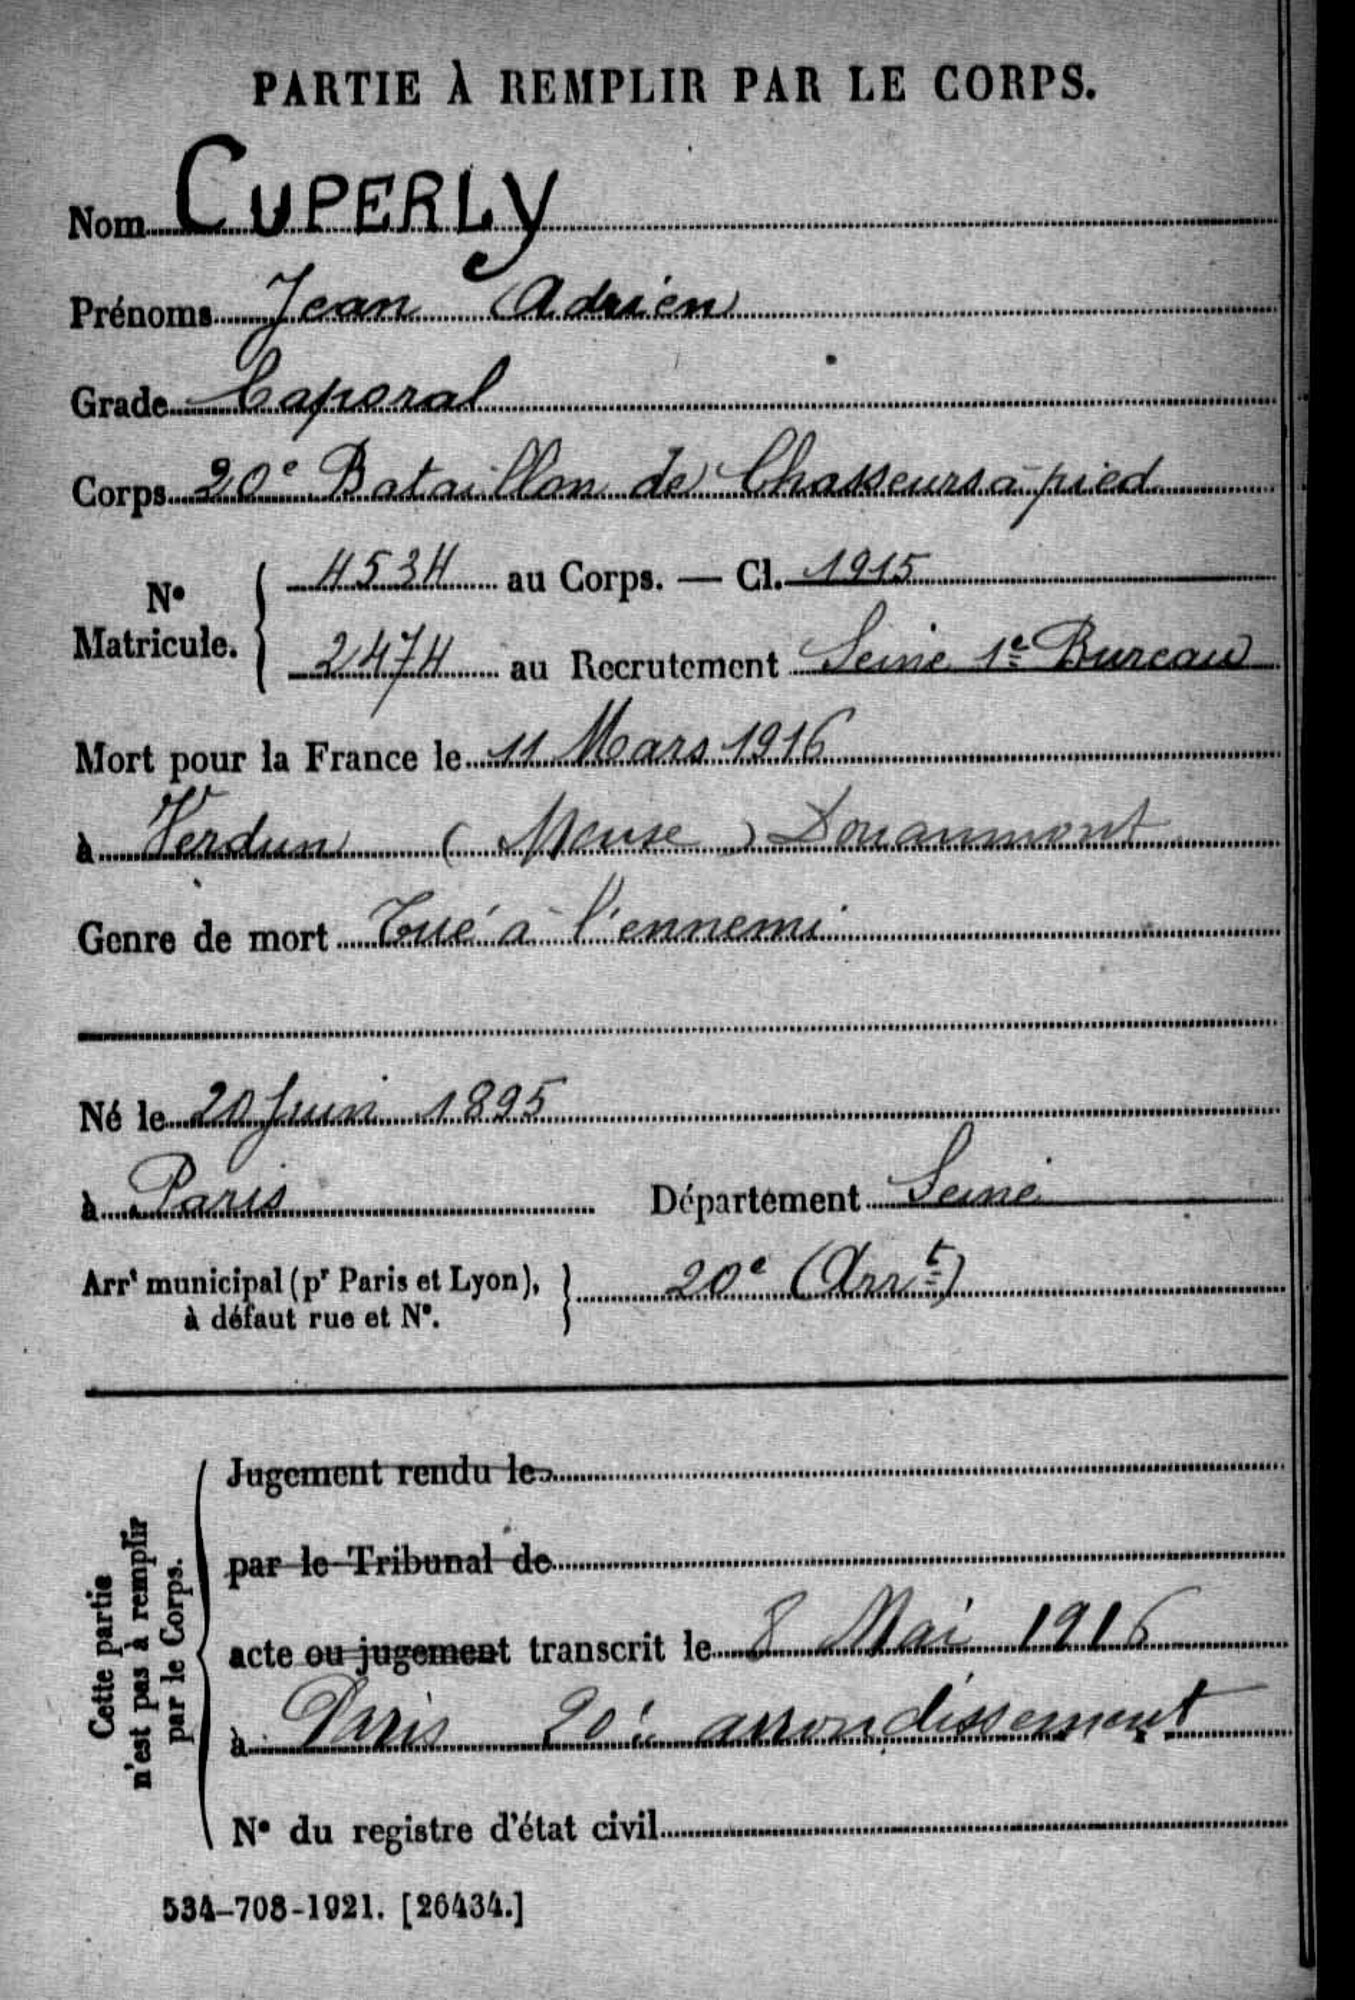 PARTIE À REMPLIR PAR LE CORPS.
Nom CUPERLY
Prénoms Jean Adrien
Grade Caporal
Corps 20e Bataillon de Chasseurs à pied
No Matricule. { 4534 au Corps. — Cl. 1915
2474 au Recrutement Seine 1e Bureau
Mort pour la France le 11 Mars 1916
à Verdun (Meuse) Douaumont
Genre de mort Tué à l'ennemi
Né le 20 Juin 1895
à Paris Département Seine
Arrt municipal (pr Paris et Lyon), } 20e (Arrt)
à défaut rue et No.
Cette partie
n'est pas à remplir
par le Corps.
Jugement rendu le
par le Tribunal de
acte ou jugement transcrit le 8 Mai 1916
à Paris 20e arrondissement
No du registre d'état civil
534-708-1921. [26434.]